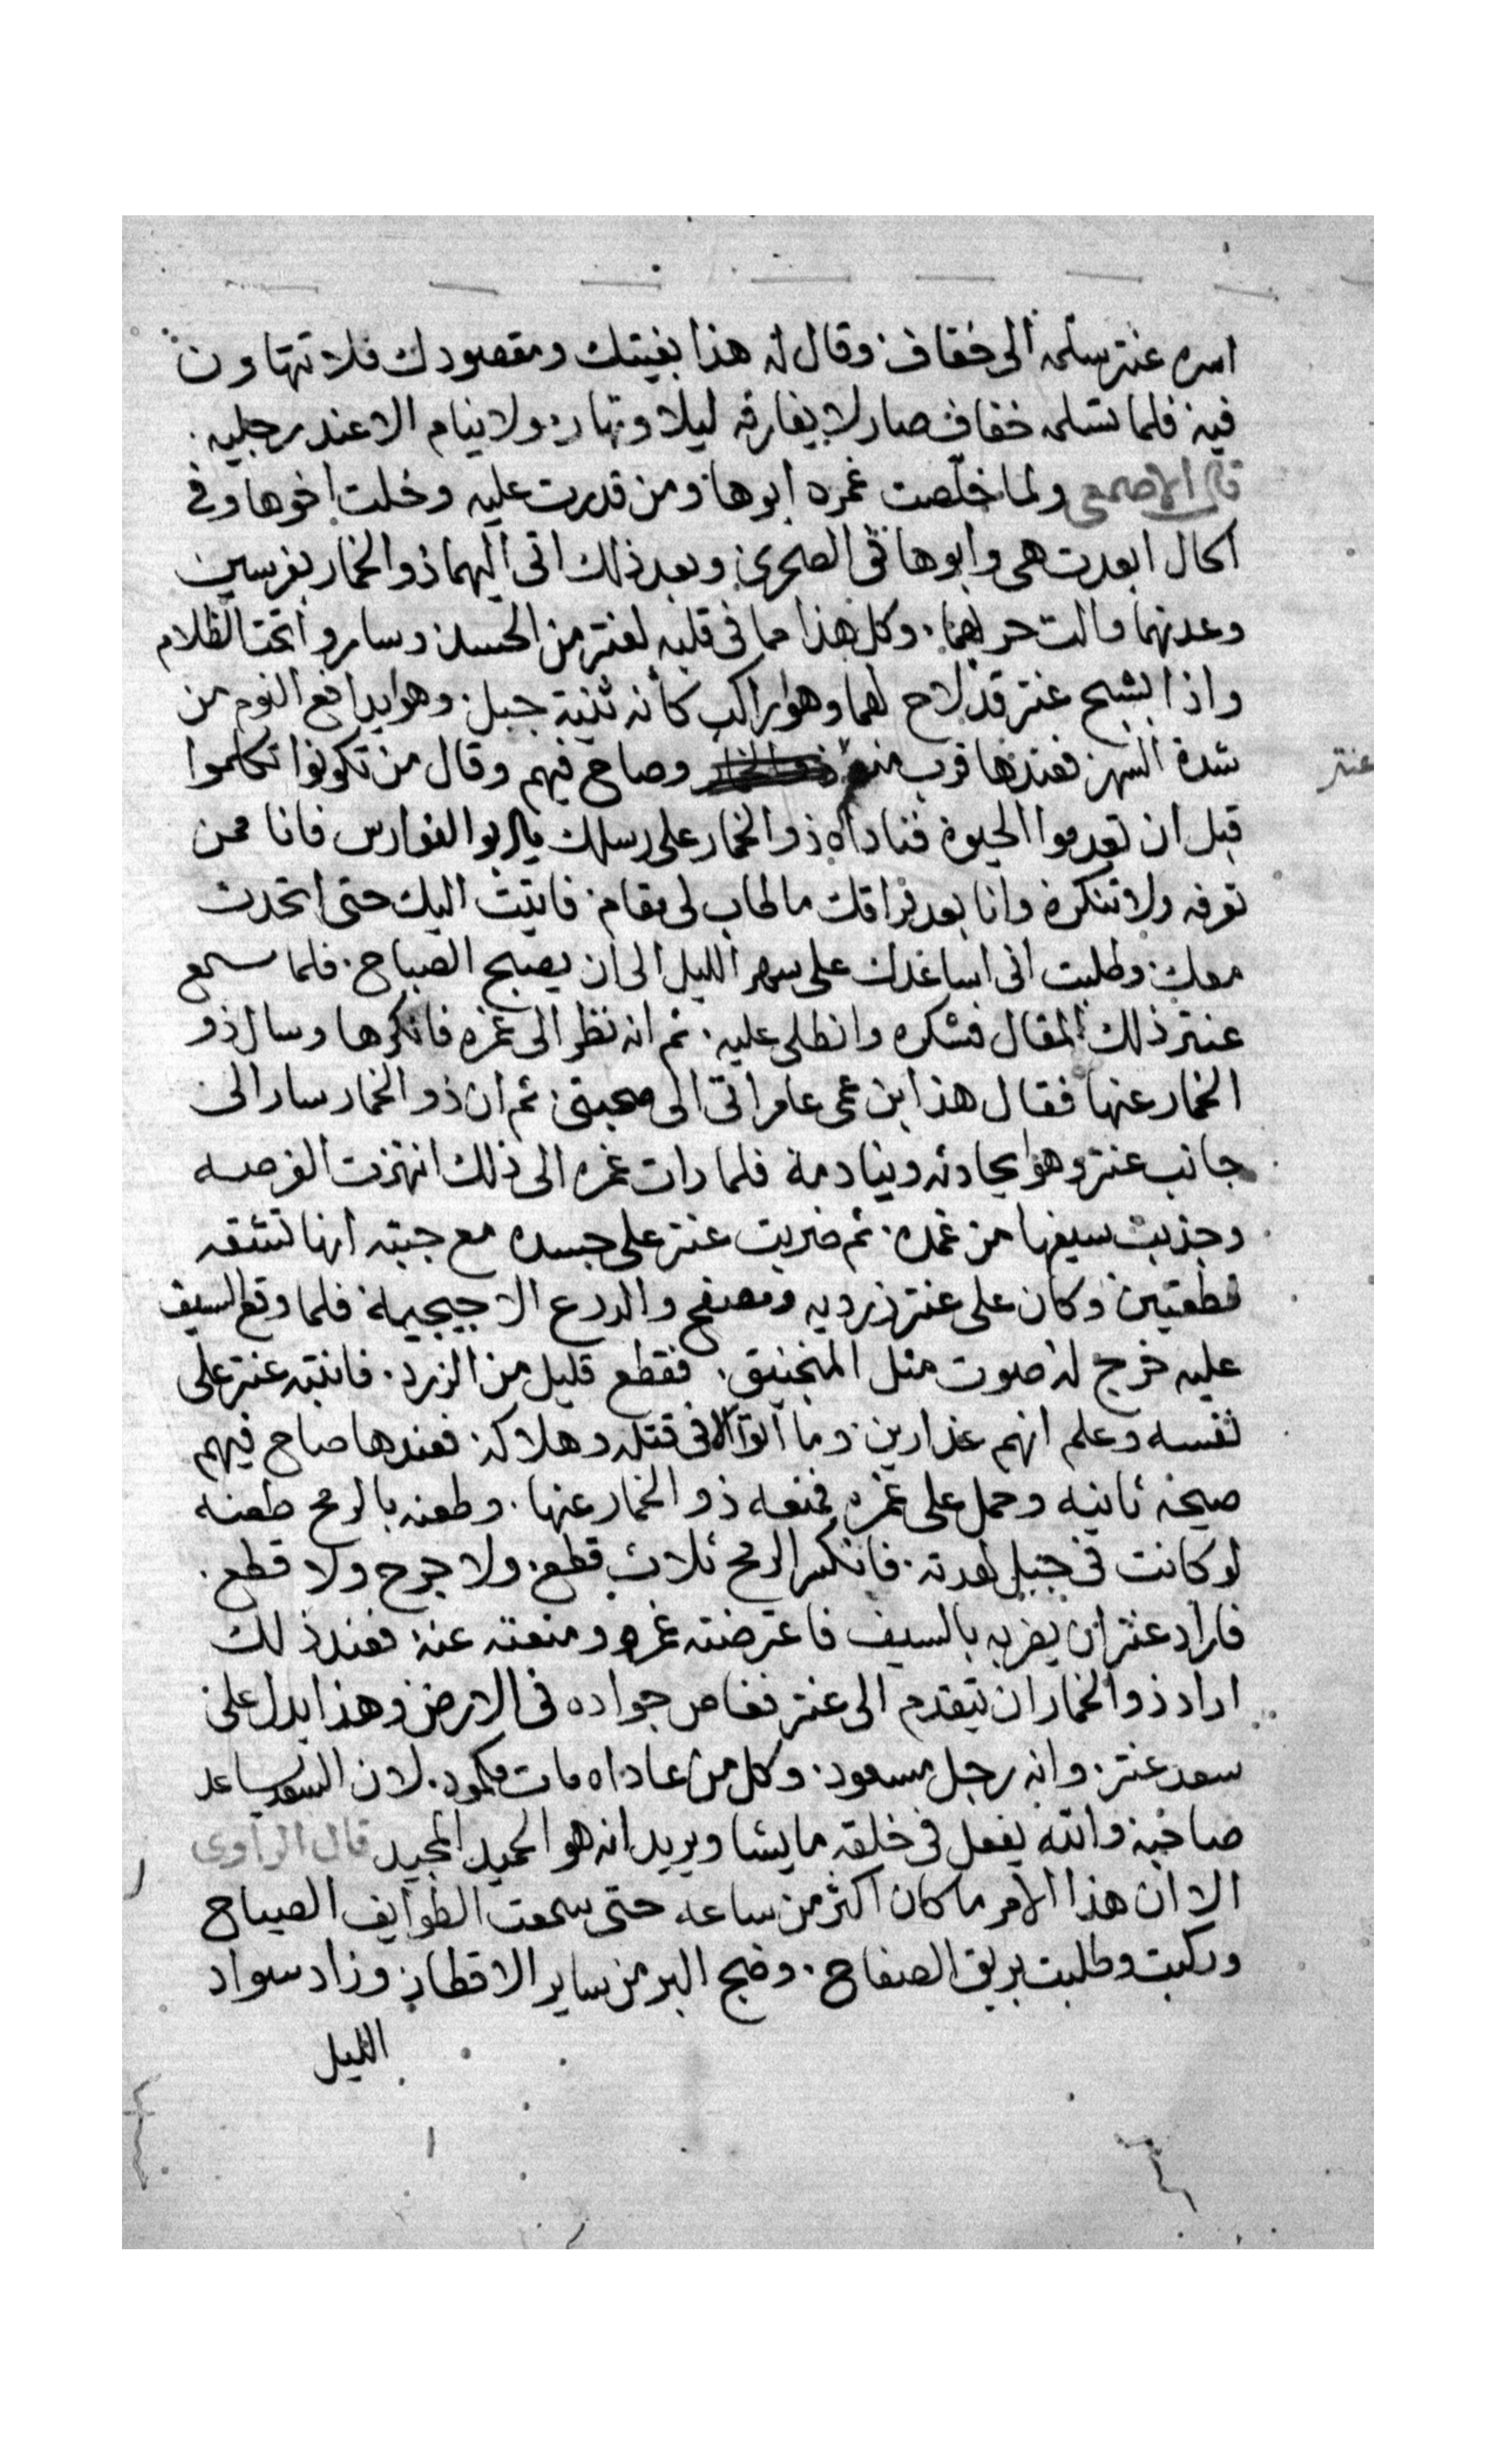 اسره عنتر سلمه الى خفاف وقال له هذا بغيتك ومقصودك فلا تتهاون
فيه فلما تسلمه خفاف صار لا يفارقه ليلا ونهار ولا ينام الا عند رجليه
قال الاصمعى ولما خلصت غمره ابوها ومن قدرت عليه وخلت اخوها وفى
الحال ابعدت هى وابوها فى الصحرى وبعد ذلك اتى اليهما ذو الخمار بفرسين
وعدتهما والت حربهما وكل هذا مما فى قلبه لعنتر من الحسد وساروا تحت الظلام
واذا بشبح عنتر قد لاح لهما وهو راكب كأنه ثنية جبل وهو يدافع النوم من
شدة السهر فعندها قرب منهم وصاح فيهم وقال من تكونوا تكلموا
عنتر
قبل ان تعدموا الحيوة فناداه ذو الخمار على رسلك يا ابو الفوارس فانا ممن
تعرفه ولا تنكره وانا بعد فراقك ما طاب لى مقام فاتيت اليك حتى اتحدث
معك وطلبت انى اساعدك على سهر الليل الى ان يصبح الصباح فلما سمع
عنتر ذلك المقال فشكره وانطلى عليه ثم انه نظر الى غمره فانكرها وسال ذو
الخمار عنها فقال هذا ابن عمى عامر اتى الى صحبتى ثم ان ذو الخمار سار الى
جانب عنتر وهو يحادثه وينادمة فلما رات غمره الى ذلك انتهزت الفرصه
وجذبت سيفها من غمده ثم ضربت عنتر على جسده مع جبته انها تشقه
قطعتين وكان على عنتر زرديه ومصفح والدرع الاجيجيمة فلما وقع السيف
عليه خرج له صوت مثل المنجنيق فقطع قليل من الزرد فانتبه عنتر على
نفسه وعلم انهم غدارين وما اتوا الا فى قتله وهلاكه فعندها صاح فيهم
صيحة ثانيه وحمل على غمره فمنعه ذو الخمار عنها وطعنه بالرمح طعنه
لو كانت فى جبل لهدته فانكسر الرمح ثلاث قطع ولا جرح ولا قطع
فاراد عنتر ان يضربه بالسيف فاعترضته غمره ومنعته عنه فعند ذلك
اراد ذو الخمار ان يتقدم الى عنتر فغاص جواده فى الارض وهذا يدل على
سعد عنتر وانه رجل مسعود وكل من عاداه مات مكمود لان السعد يساعد
صاحبه والله يفعل فى خلقه ما يشا ويريد انه هو الحميد المجيد قال الراوى
الا ان هذا الامر ما كان اكثر من ساعه حتى سمعت الطوايف الصياح
وركبت وطلبت بريق الصفاح وضج البر من ساير الاقطار وزاد سواد
الليل